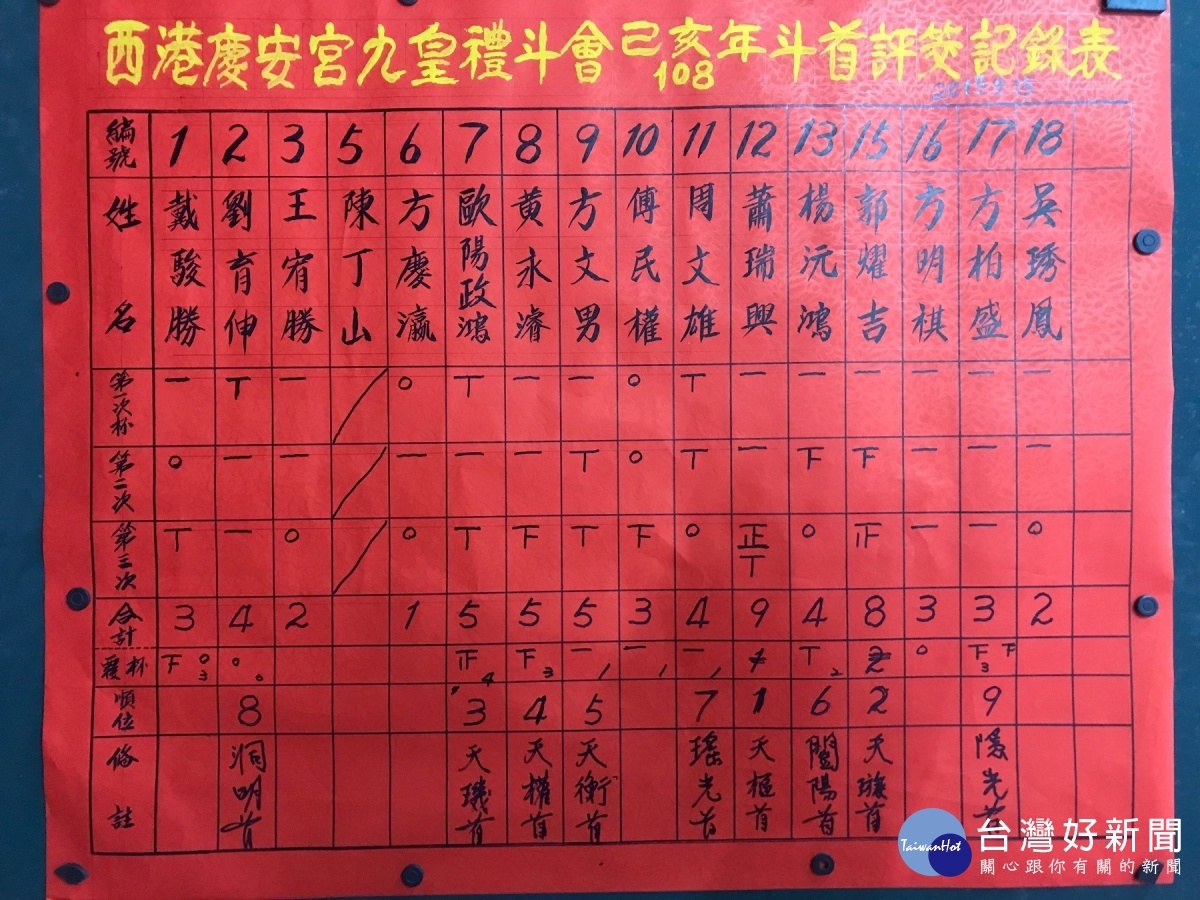 西港慶安宮九皇禮斗會己亥108年斗首評筊記錄表
編號 1 2 3 5 6 7 8 9 10 11 12 13 15 16 17 18
姓名 戴駿勝 劉育伸 王宥勝 陳丁山 方慶瀛 歐陽政鴻 黃永濬 方文男 傅民權 周文雄 蕭瑞興 楊沅鴻 郭耀吉 方明祺 方柏盛 吳琇鳳
第一次杯 一 丅 一 ／ ○ 丅 一 一 ○ 丅 一 一 一 一 一 一
第二次 ○ 一 一 ／ 一 一 一 丅 ○ 丅 一 下 下 一 一 一
第三次 丅 一 ○ ／ ○ 丅 下 丅 下 ○ 正丅 ○ 正 一 一 ○
合計 3 4 2 1 5 5 5 3 4 9 4 8 3 3 2
覆杯 下 ○ 3 ○ ○ 正 4 下 3 一 1 一 1 一 1 丅 2 2 ○ 下 3 下
順位 8 3 4 5 7 1 6 2 9
俻註 洞明首 天璣首 天權首 天衡首 瑤光首 天樞首 闓陽首 天璇首 隱光首
台灣好新聞
TaiwanHot
關心跟你有關的新聞